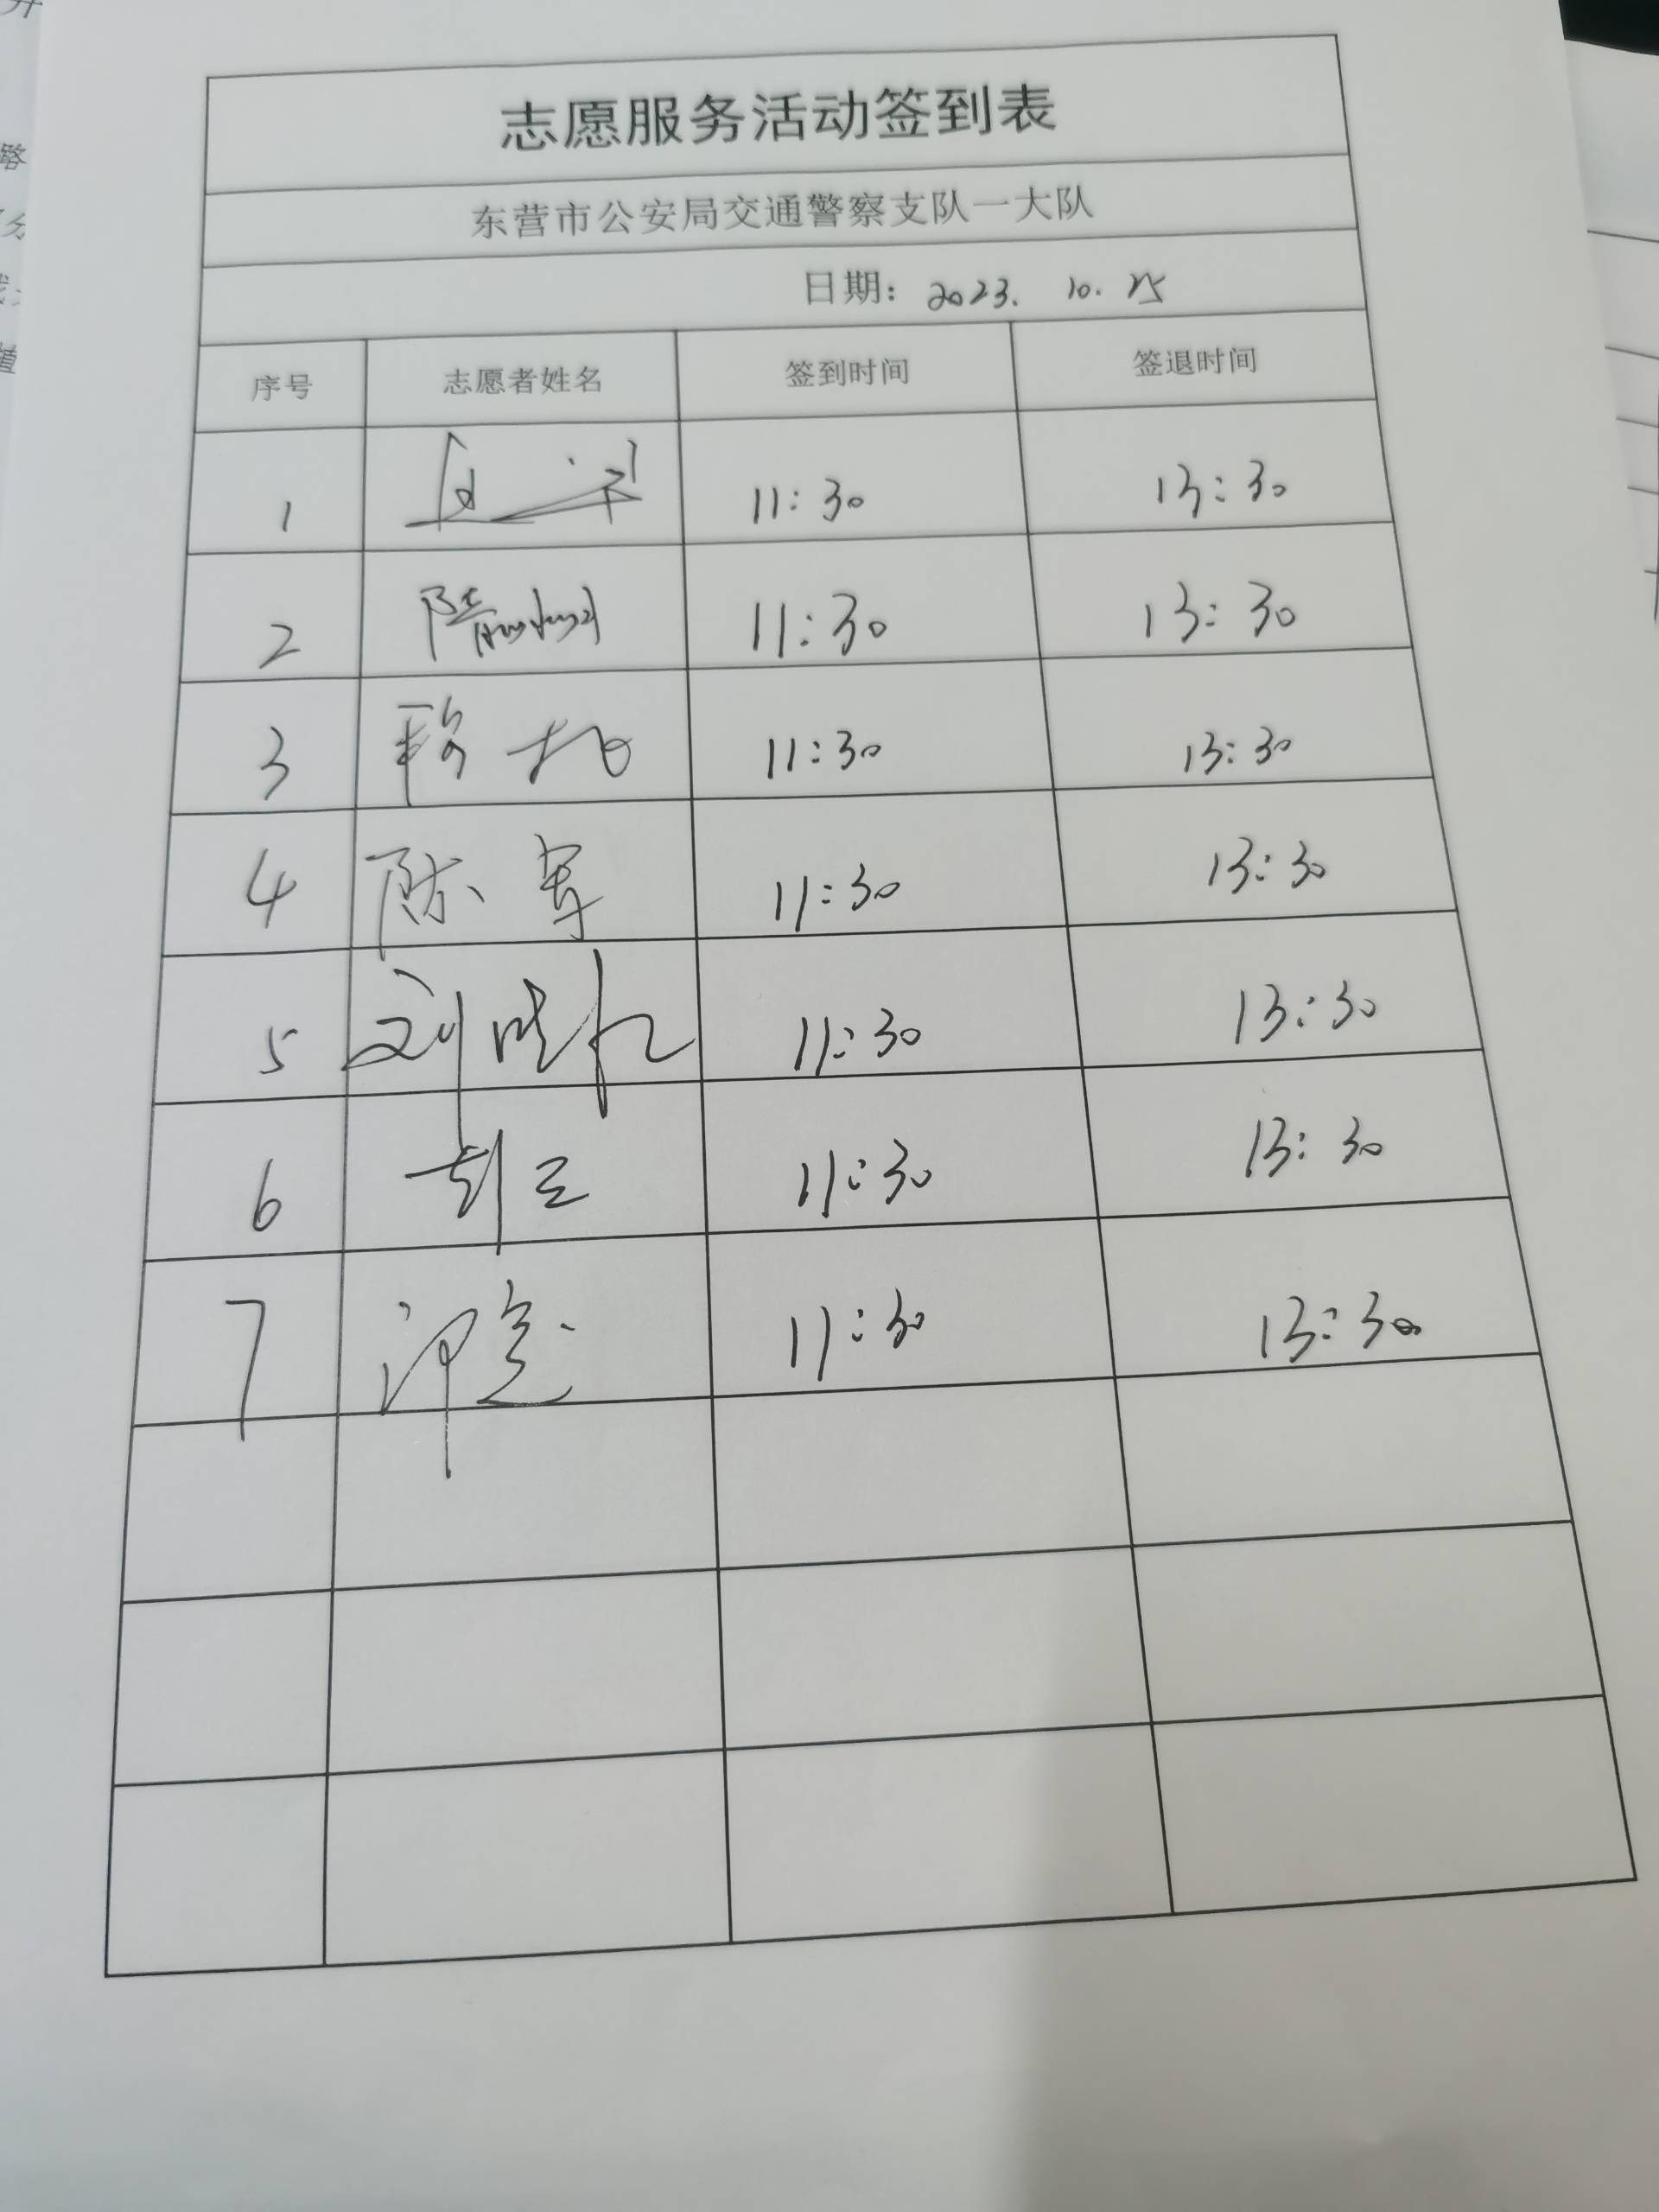 志愿服务活动签到表
东营市公安局交通警察支队一大队
日期: 2023. 10. 25
序号 志愿者姓名 签到时间 签退时间
1 11:30 13:30
2 11:30 13:30
3 11:30 13:30
4 陈军 11:30 13:30
5 刘 11:30 13:30
6 11:30 13:30
7 11:30 13:30